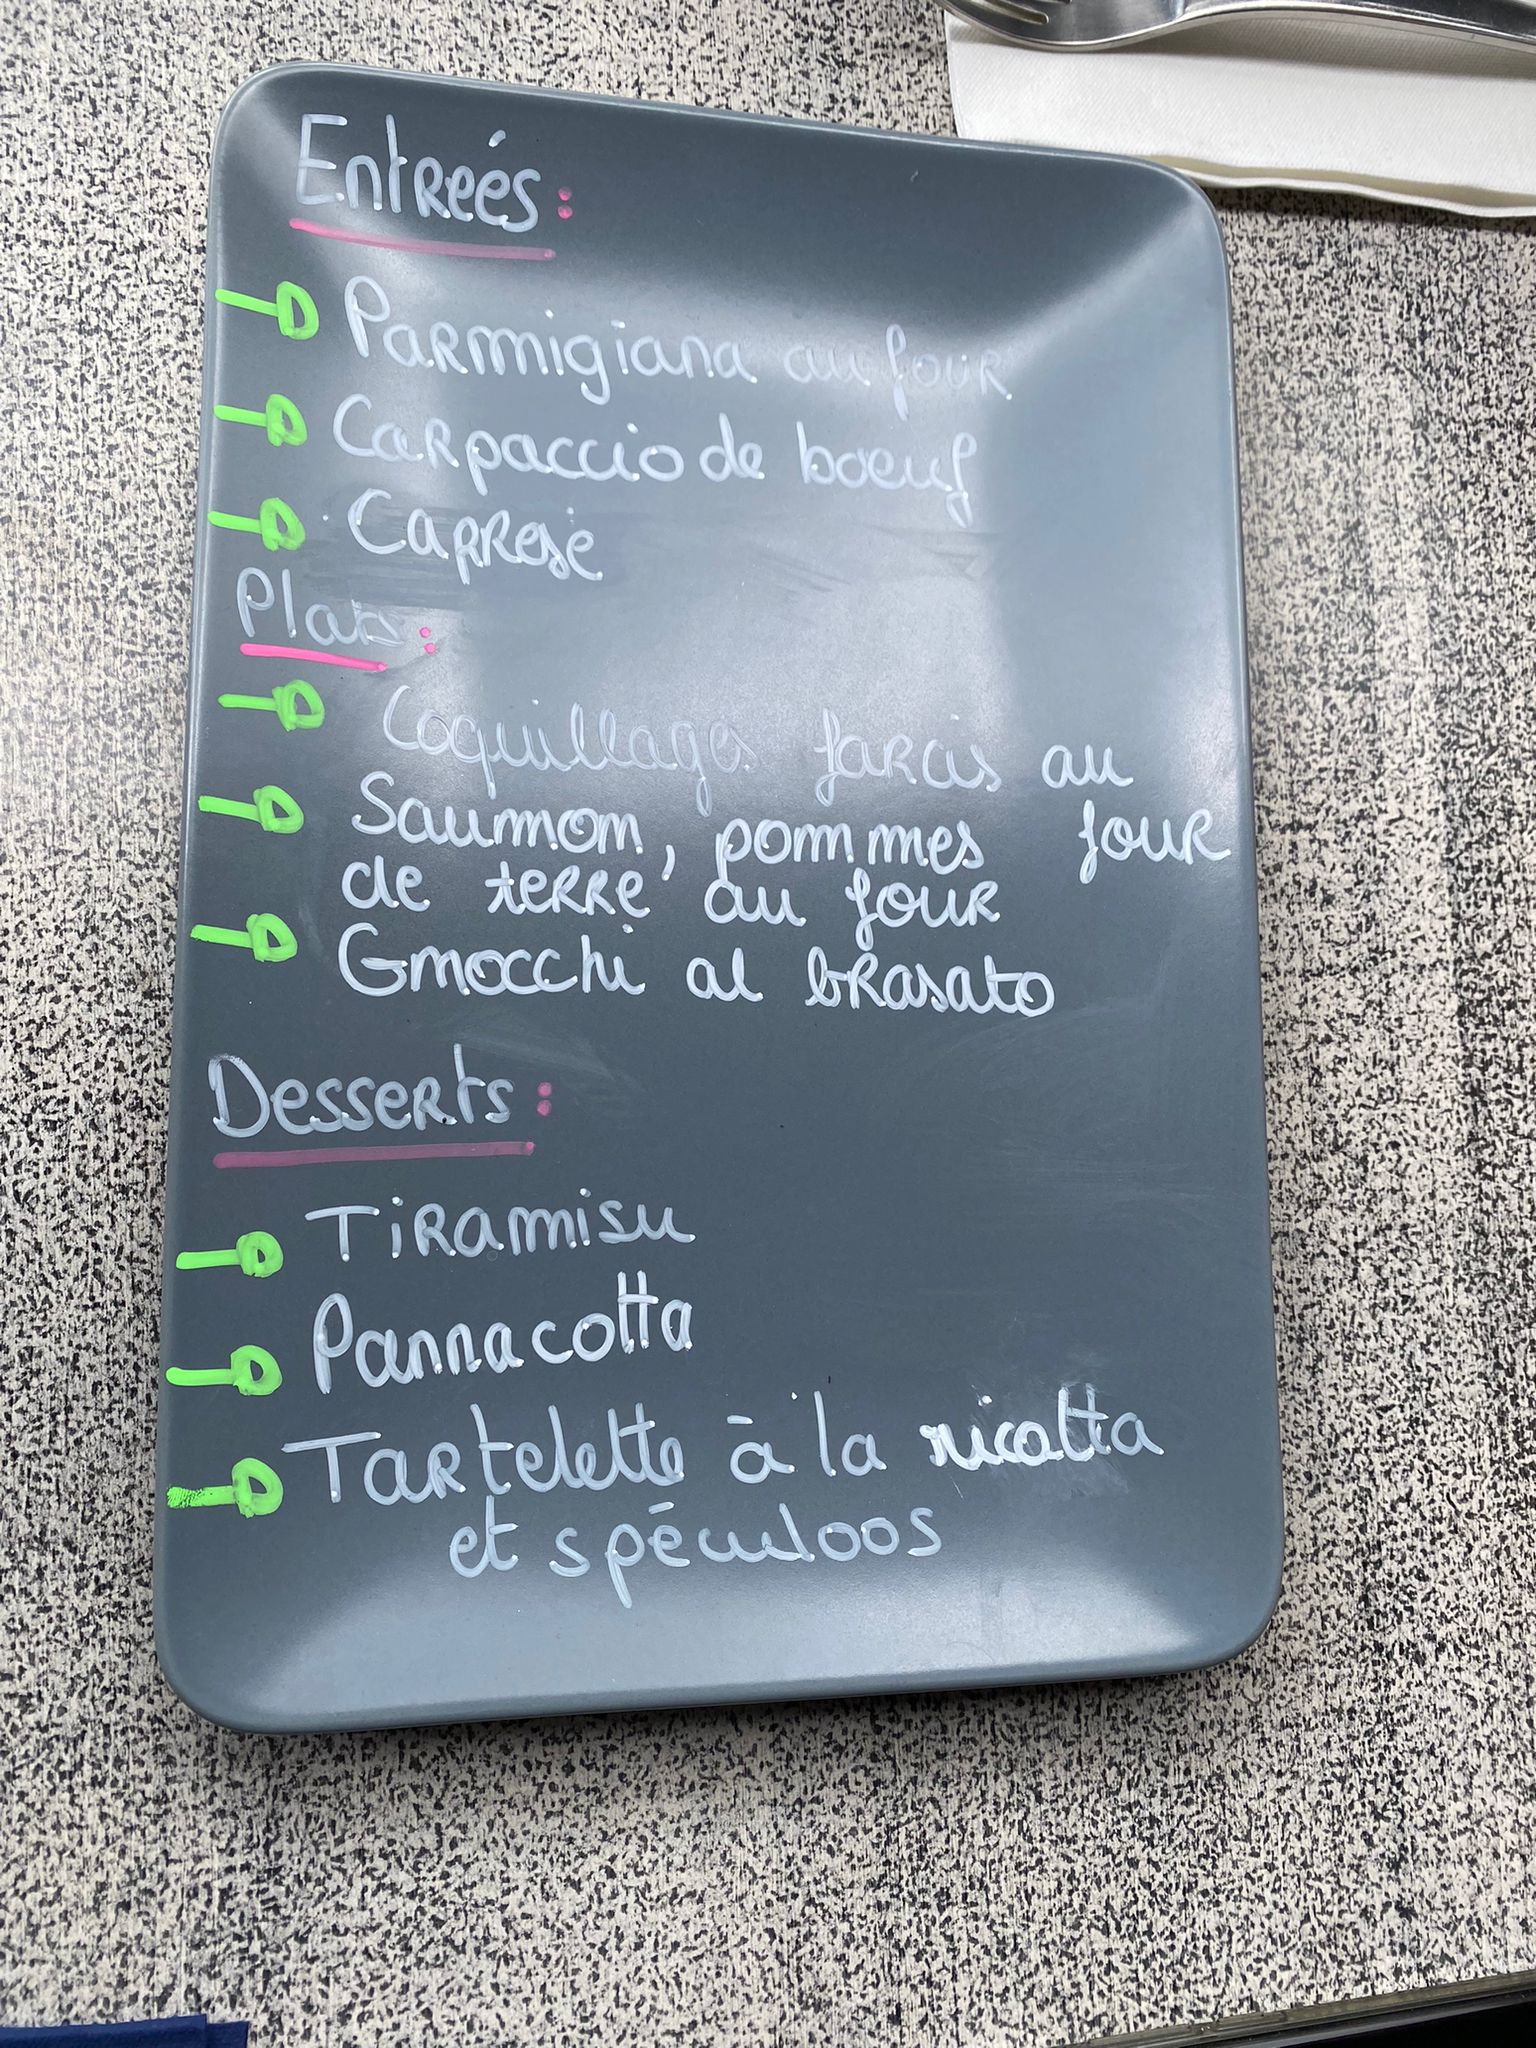 Entreés :
Parmigiana au four
Carpaccio de boeuf
Caprese
Plats :
Coquillages farcis au
four
Saumon, pommes
de terre au four
Gnocchi al brasato
Desserts :
Tiramisu
Pannacotta
Tartelette à la ricotta
et spéculoos